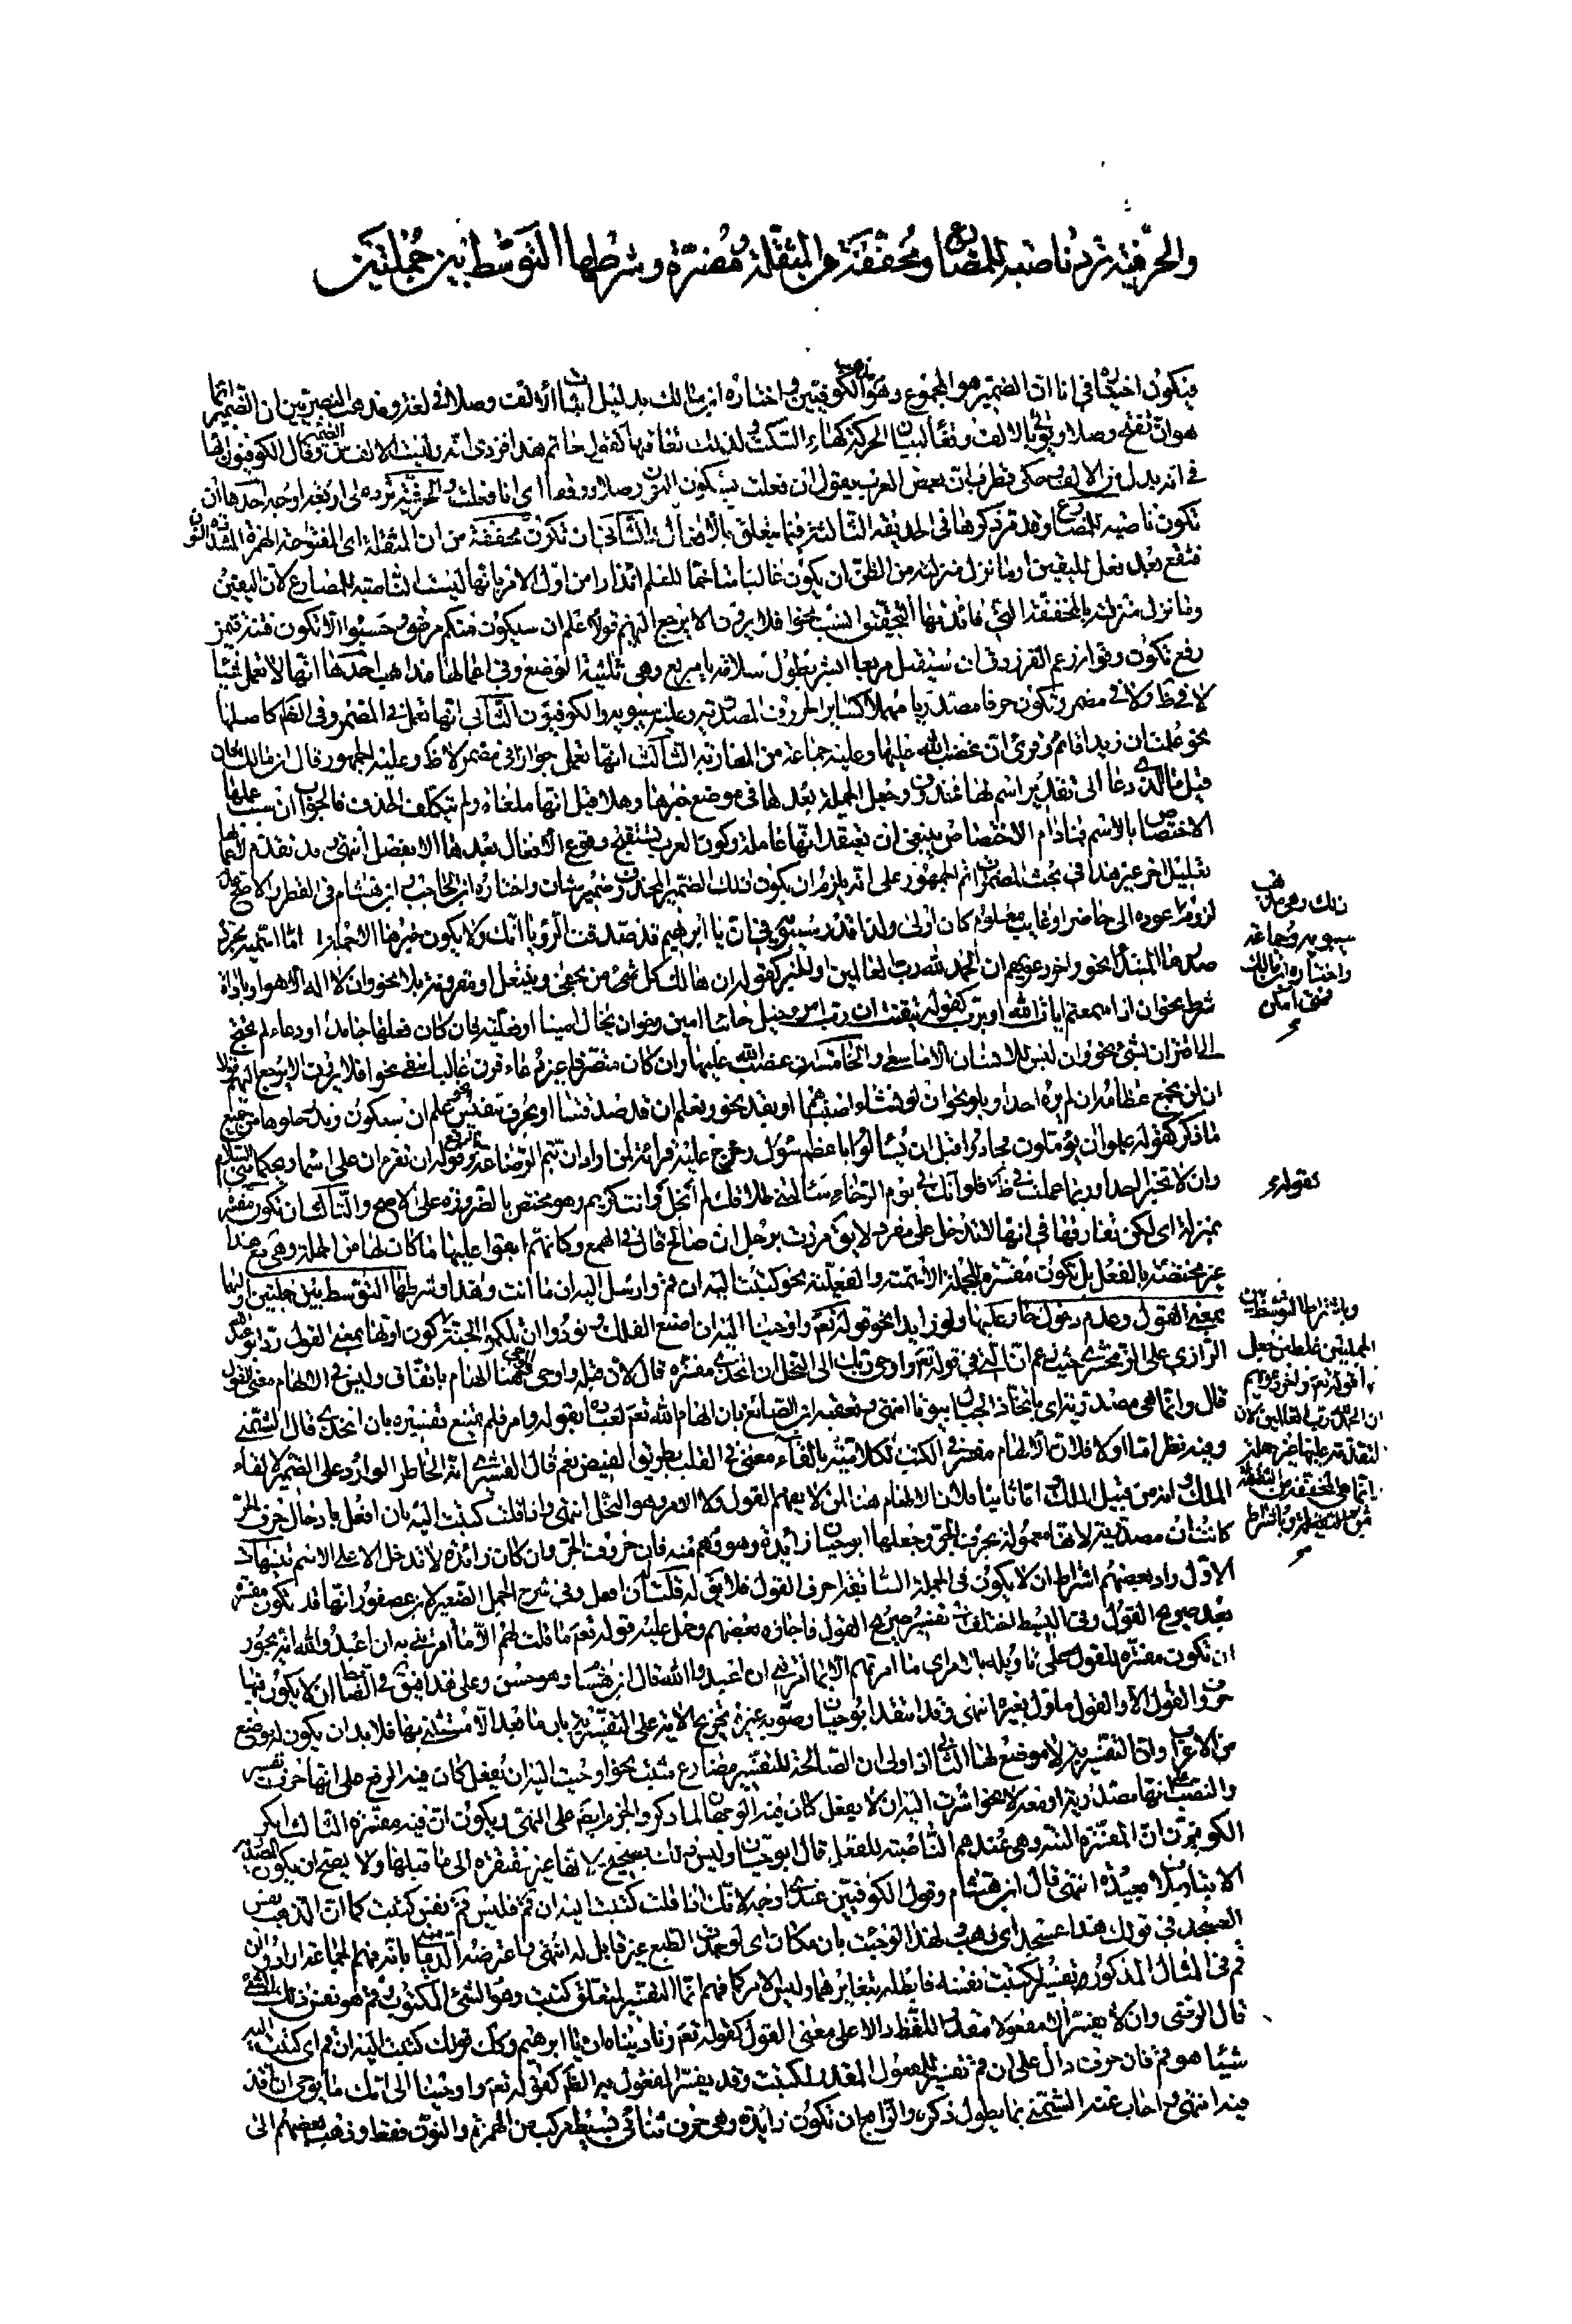 والحرفية ترد ناصبة للمضارع ومخففة من المثقلة ومفسرة وشرطها التوسط بين جملتين
فيكون اخبثا في انا ان الضمير هو المجموع وهو مذهب الكوفيين واختاره ابن مالك بدليل اثبات الالف وصلا في لغة ومذهب البصريين ان الضمير انما
هو ان تفتح وصلا ويؤتى بالالف وقفا لبيان الحركة كهاء السكت ولذلك تعاقبها كقول حاتم هذا فزدي انه وليست الالف من الضمير وقال الكوفيون انها
في انه بدل من الالف حكى قطرب ان بعض العرب يقول ان فعلت بسكون النون وصلا ووقفا اي انا فعلت والحرفية ترد على اربعة اوجه احدها ان
تكون ناصبة للمضارع وقد مر ذكرها في الحديقة الثالثة فيما يتعلق بالافعال الثاني ان تكون مخففة من ان المثقلة اي المفتوحة الهمزة المشددة النون
فتقع بعد فعل لليقين او ما نزل منزلته من الظن ان يكون غالبا متاخما للعلم انذارا من اول الامر بانها ليست الناصبة للمضارع لان اليقين
وما نزل منزلته بالمخففة التي فائدتها التحقيق انسب نحو افلا يرون ان لا يرجع اليهم قولا علم ان سيكون منكم مرضى وحسبوا الا تكون فتنة فيمن
رفع تكون وقوله زعم الفرزدق ان سيقتل مربعا ابشر بطول سلامة يا مربع وهي ثلاثية الوضع وفي اعمالها مذاهب احدها انها لا تعمل شيئا
لا في ظاهر ولا في مضمر وتكون حرفا مصدريا مهملا كسائر الحروف المصدرية وعليه سيبويه والكوفيون الثاني انها تعمل في المضمر وفي الظاهر كاصلها
نحو علمت ان زيدا قائم وقرئ ان غضب الله عليها وعليه جماعة من المغاربة الثالث انها تعمل جوازا في مضمر لا ظاهر وعليه الجمهور قال ابن مالك فان
قيل ما الذي دعا الى تقدير اسم لها محذوف وجعل الجملة بعدها في موضع خبرها وهلا قيل انها ملغاة ولم يتكلف الحذف فالجواب ان سبب عملها
الاختصاص بالاسم فما دام الاختصاص ينبغي ان يعتقد انها عاملة وكون العرب تستقبح وقوع الافعال بعدها الا بفصل انتهى وقد تقدم لاعمالها
تعليل اخر غير هذا في بحث المضمرات ثم الجمهور على انه يلزم ان يكون ذلك الضمير المحذوف ضمير شان واختاره ابن الحاجب وابن هشام في القطر والاصح عدم
لزومه عوده الى حاضر او غايب معلوم كان اولى ولذا قدر سيبويه في ان يا ابرهيم قد صدقت الرؤيا انك ولا يكون خبرها الا جملة اما اسمية مجرد
صدرها المبتدأ نحو واخر دعويهم ان الحمد لله رب العالمين او الخبر كقوله ان هالك كل من يحفى وينتعل او مقرونة بلا نحو وان لا اله الا هو او باداة
شرط نحو ان اذا سمعتم ايات الله او برب كقوله تيقنت ان رب امرء خيل خائنا امين وخوان يخال امينا او فعلية فان كان فعلها جامدا او دعاء لم تحتج
الى اقتران بشئ نحو وان ليس للانسان الا ما سعى والخامسة ان غضب الله عليها وان كان متصرفا غير دعاء قرن غالبا بنفي نحو افلا يرون ان لا يرجع اليهم قولا
ان لن نجمع عظامه ان لم يره احد او بلو نحو ان لو نشاء اصبناهم او بقد نحو ونعلم ان قد صدقتنا او بحرف تنفيس نحو علم ان سيكون وندر خلوها من جميع
ما ذكر كقوله علموا ان يؤملون فجادوا قبل ان يسالوا باعظم سؤل وخرج عليه قرائة لمن اراد ان يتم الرضاعة برفع يتم وقوله ان تقرءان على اسماء ويحكما مني السلام
وان لا تخبرا احدا وربما عملت في ظاهر فلو انك في يوم الرخاء سئلتني طلاقك لم ابخل وانت كريم وهو مختص بالضرورة على الاصح والثالث ان تكون مفسرة
بمنزلة اي لكن تفارقها في انها لا تدخل على مفرد لا يق مررت برجل ان صالح قال في الهمع وكانهم ابقوا عليها ما كان لها من الجملة وهي مع هذا
غير مختصة بالفعل بل تكون مفسرة للجملة الاسمية والفعلية نحو كتبت اليه ان قم وارسل اليه ان ما انت وهذا وشرطها التوسط بين جملتين اوليهما
بمعنى القول وعدم دخول جار عليها ولو زايدا نحو قوله تعم واوحينا اليه ان اصنع الفلك ونودوا ان تلكم الجنة لكون اولهما بمعنى القول
الرازي على الزمخشري حيث زعم ان التي في قوله تعم واوحى ربك الى النحل ان اتخذي مفسرة قال لان قبله واوحى والوحي هنا الهام باتفاق وليس في الالهام معنى القول
قال وانما هي مصدرية اي باتخاذ الجبال بيوتا انتهى وتعقبه ابن الصائغ بان الهام الله تعم لعباده بقوله وامره فلم يمتنع تفسيره بان اتخذي قال الشمني
وفيه نظر اما اولا فلان الالهام مفسر في الكتب الكلامية بالقاء معنى في القلب بطريق الفيض نعم قال القشيري انه الخاطر الوارد على الضمير لالقاء
الملك وانه من قبيل الملك واما ثانيا فلان الالهام هنا لمن لا يفهم القول ولا الامر وهو النحل انتهى واذا قلت كتبت اليه بان افعل بادخال حرف الجر
كانت ان مصدرية لانها معمولة بحرف الجر وجعلها ابو حيان زائدة وهو وهم منه فان حروف الجر وان كان زائدة لا تدخل الا على الاسم تنبيهات
الاول زاد بعضهم اشتراط ان لا يكون في الجملة السابقة احرف القول فلا يق له قلت ان افعل وفي شرح الجمل الصغير لابن عصفور انها قد تكون مفسرة
بعد صريح القول وفي البسيط اختلف في تفسير صريح القول فاجازه بعضهم وحمل عليه قوله تعم ما قلت لهم الا ما امرتني به ان اعبدوا الله انه يجوز
ان تكون مفسرة للقول على تاويله بالامر اي ما امرتهم الا بما امرتني ان اعبدوا الله قال ابن هشام وهو حسن وعلى هذا فيق في الضابط ان لا يكون فيها
حروف القول الا والقول مأول بغيره انتهى وقد انتقد ابو حيان وصوبه غيره تخريج الاية على التفسيرية بان ما بعد الا مستثنى بها فلابد ان يكون له موضع
من الاعراب وان التفسيرية لا موضع لها الثاني اذا ولى ان الصالحة للتفسير مضارع مثبت نحو اوحيت اليه ان يفعل كان فيه الرفع على انها حرف تفسير
والنصب على انها مصدرية او معه لا نحو اشرت اليه ان لا يفعل كان فيه الوجهان لما ذكر والجزم ايضا على النهي ويكون ان فيه مفسرة الثالث انكر
الكوفيون ان المفسرة البتة وهي عندهم الناصبة للفعل قال ابو حيان وليس ذلك بصحيح لانها غير مفتقرة الى ما قبلها ولا يصح ان يكون المصدرية
الا بتاويل بعيد انتهى قال ابن هشام وقول الكوفيين عندي اوجه لانك اذا قلت كتبت اليه ان قم فليس قم نفس كتبت كما ان الذهب نفس
العسجد في قولك هذا عسجد اي ذهب لهذا لو جئت باي مكان ان لوجدت الطبع غير قابل له انتهى واعترضه الدماميني بانه فهم الجماعة ارادوا ان
قم في المثال المذكور تفسير لكتبت نفسه فابطله بتغايرهما وليس الامر كما فهم انما التفسير لمتعلق كتبت وهو الشئ المكتوب وقم هو نفس ذلك الشئ
قال الرضي وان لا يفسر الا مفعولا مقدر اللفظ دالا على معنى القول كقوله تعم وناديناه ان يا ابرهيم وكك قولك كتبت اليه ان قم اي كتبت اليه
شيئا هو قم فان حرف دال على ان قم تفسير للمفعول المقدر لكتبت وقد يفسر المفعول به الظاهر كقوله تعم واوحينا الى امك ما يوحى ان اقذ
فيه انتهى واجاب عنه الشمني بما يطول ذكره والرابع ان تكون زايدة وهي حرف ثنائي بسيط مركب من الهمزة والنون فقط وذهب بعضهم الى
ذلك وهي مذهب
سيبويه وجماعة
واختاره ابن مالك
فمتى امكن
كقوله
وباشتراط التوسط بين
الجملتين غلط من جعل
قوله تعم واخر دعويهم
ان الحمد لله رب العالمين لان
المتقدمة عليها غير جملة
انما هي المخففة من الثقيلة